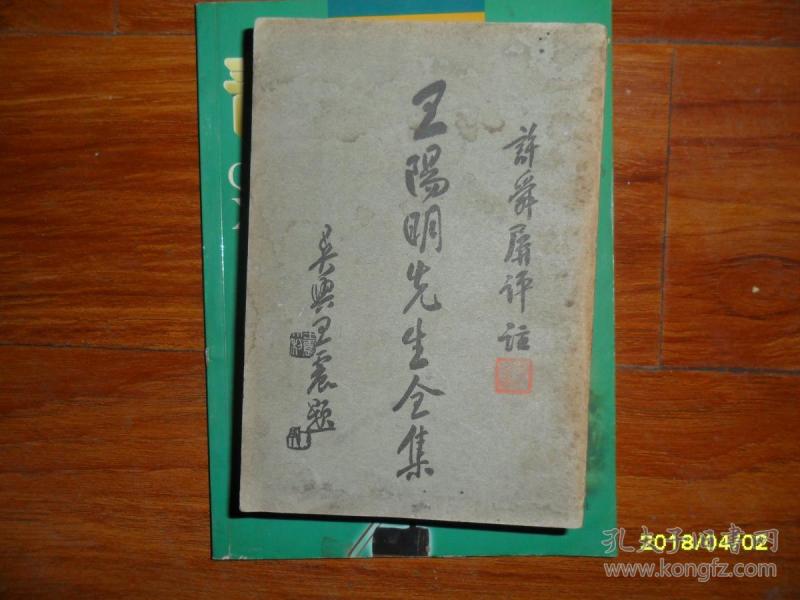 許舜屏評註
王陽明先生全集
吳興王震題
2018/04/02
孔夫子旧书网
www.kongfz.com